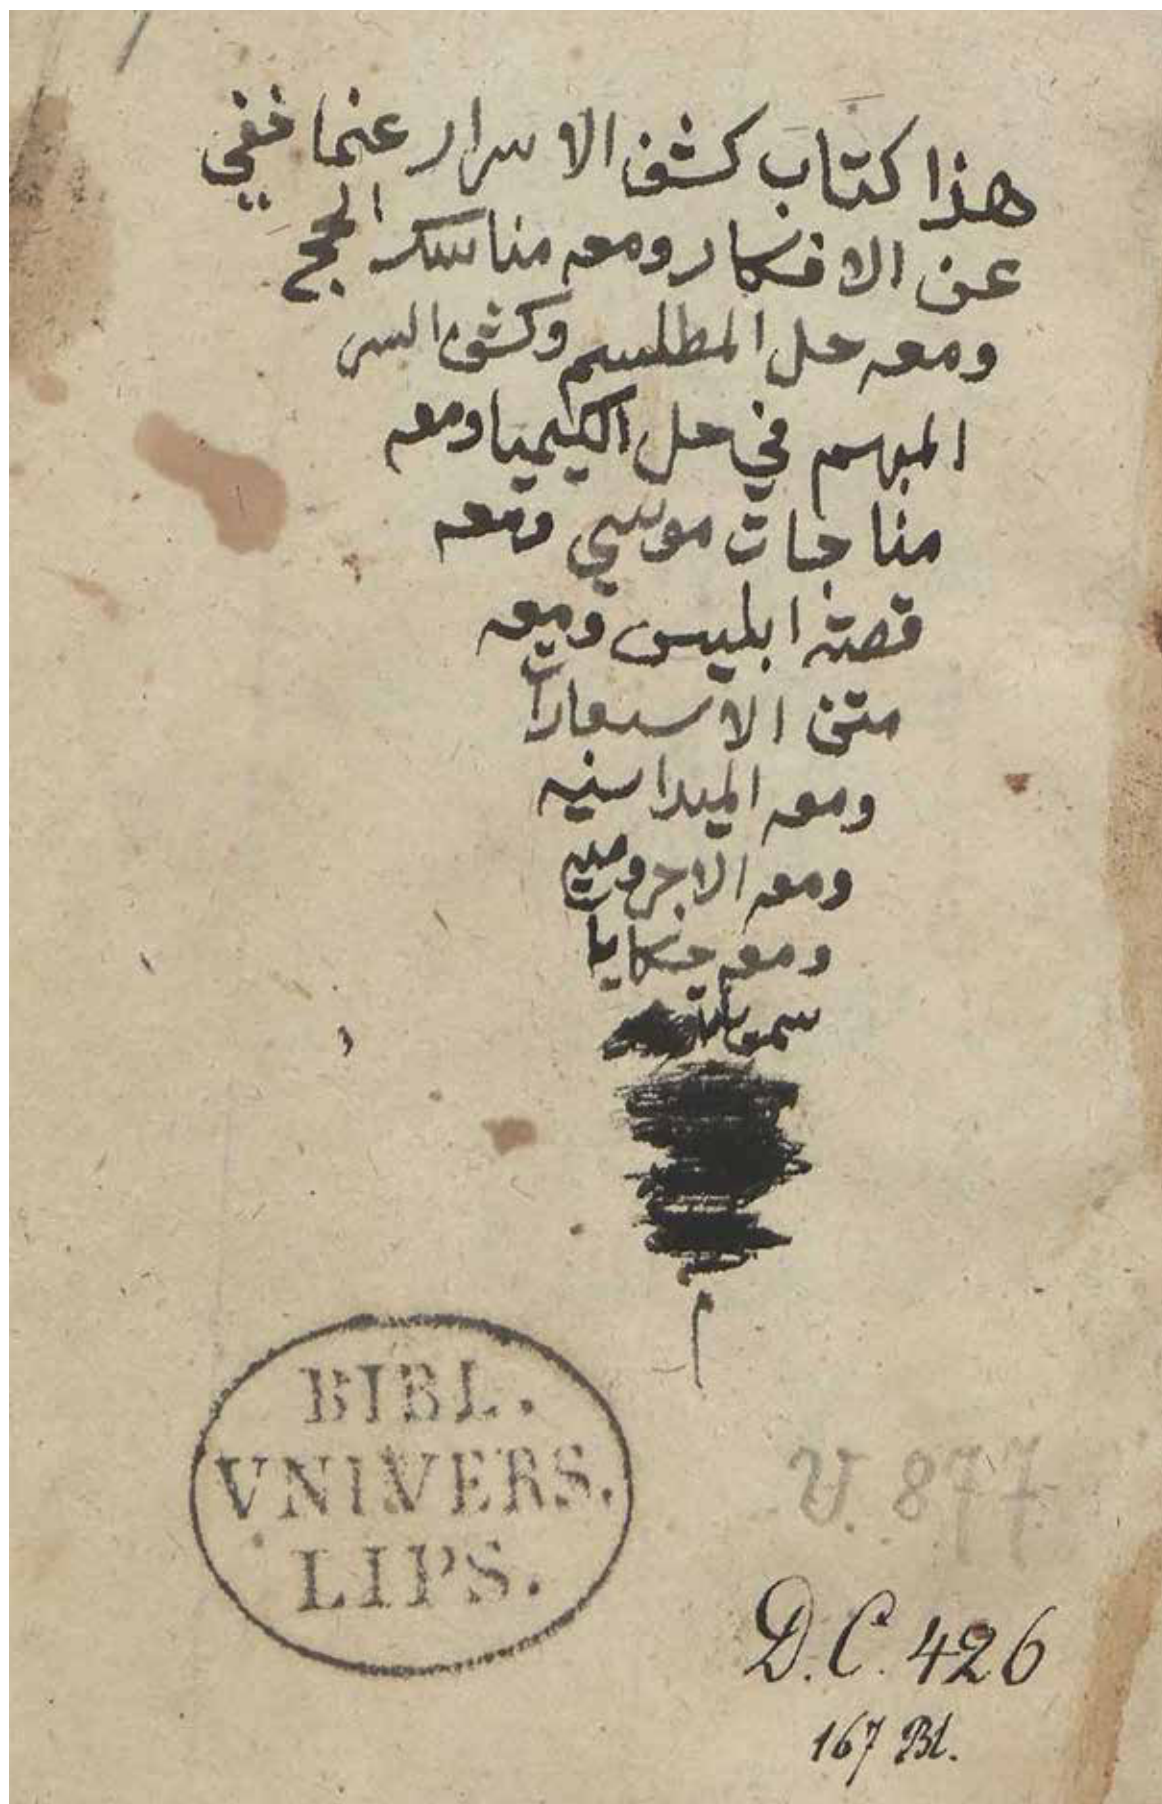 هذا كتاب كشف الاسرار عنما خفي
عن الافكار ومعه مناسك الحج
ومعه حل المطلسم وكشف السر
المبهم في حل الكيميا ومعه
مناجات موسي ومعه
قصة ابليس ومعه
متن الاستعارات
ومعه الميدانيه
ومعه الاجروميه
ومعه حكايا
BIBL.
VNIVERS.
LIPS.
V. 877
D.C. 426
167 Bl.